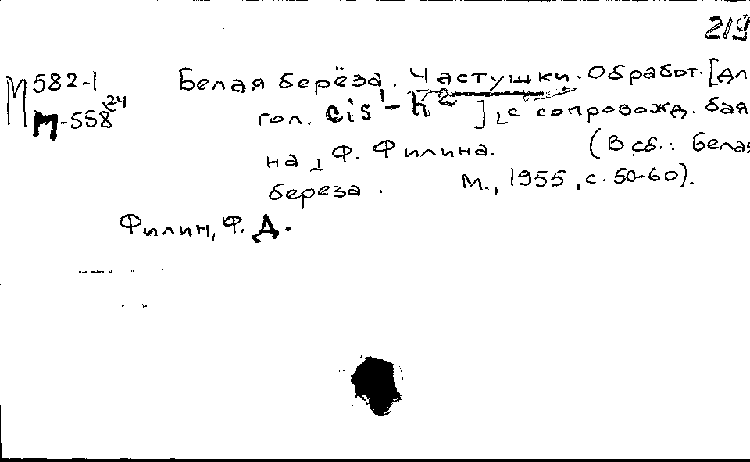 219
М 582-1 Белая берёза. Частушки. Обработ. [дл
М-558 24 гол. cis¹-h² ] с сопровожд. бая
на Ф. Филина. (В сб.: Белая
береза. М., 1955, с. 50-60).
Филин, Ф. Д.